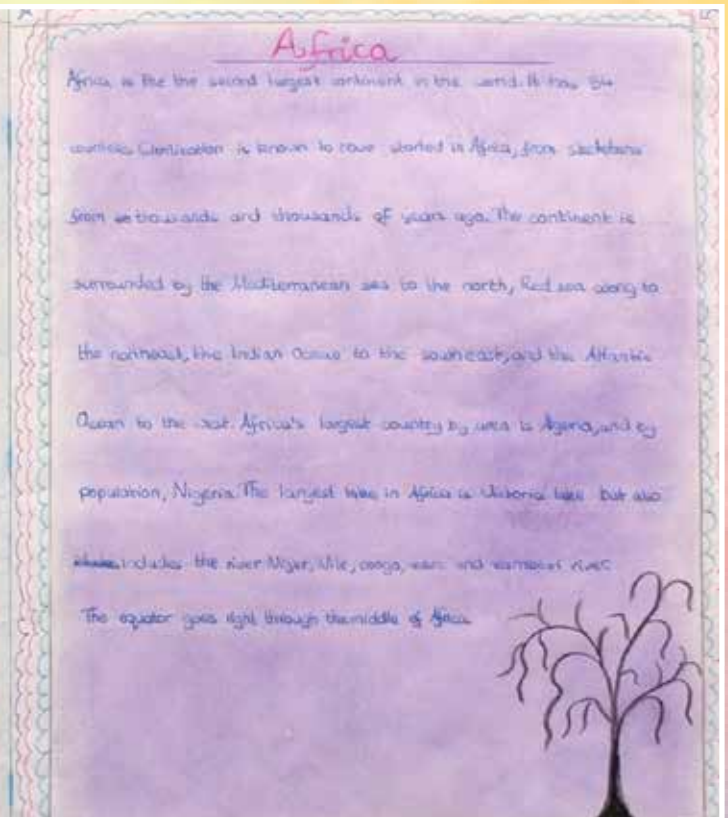 Africa
Africa is the the second largest continent in the world. It has 54
countries. Civilization is known to have started in Africa, from
from thousands and thousands of years ago. The continent is
surrounded by the Mediterranean sea to the north, Red sea along to
the northeast, the Indian Ocean to the southeast, and the Atlantic
Ocean to the west. Africa's largest country by area is Algeria, and by
population, Nigeria. The largest lake in Africa is Victoria lake but also
includes the river Niger, Nile, congo, and river.
The equator goes right through the middle of Africa.